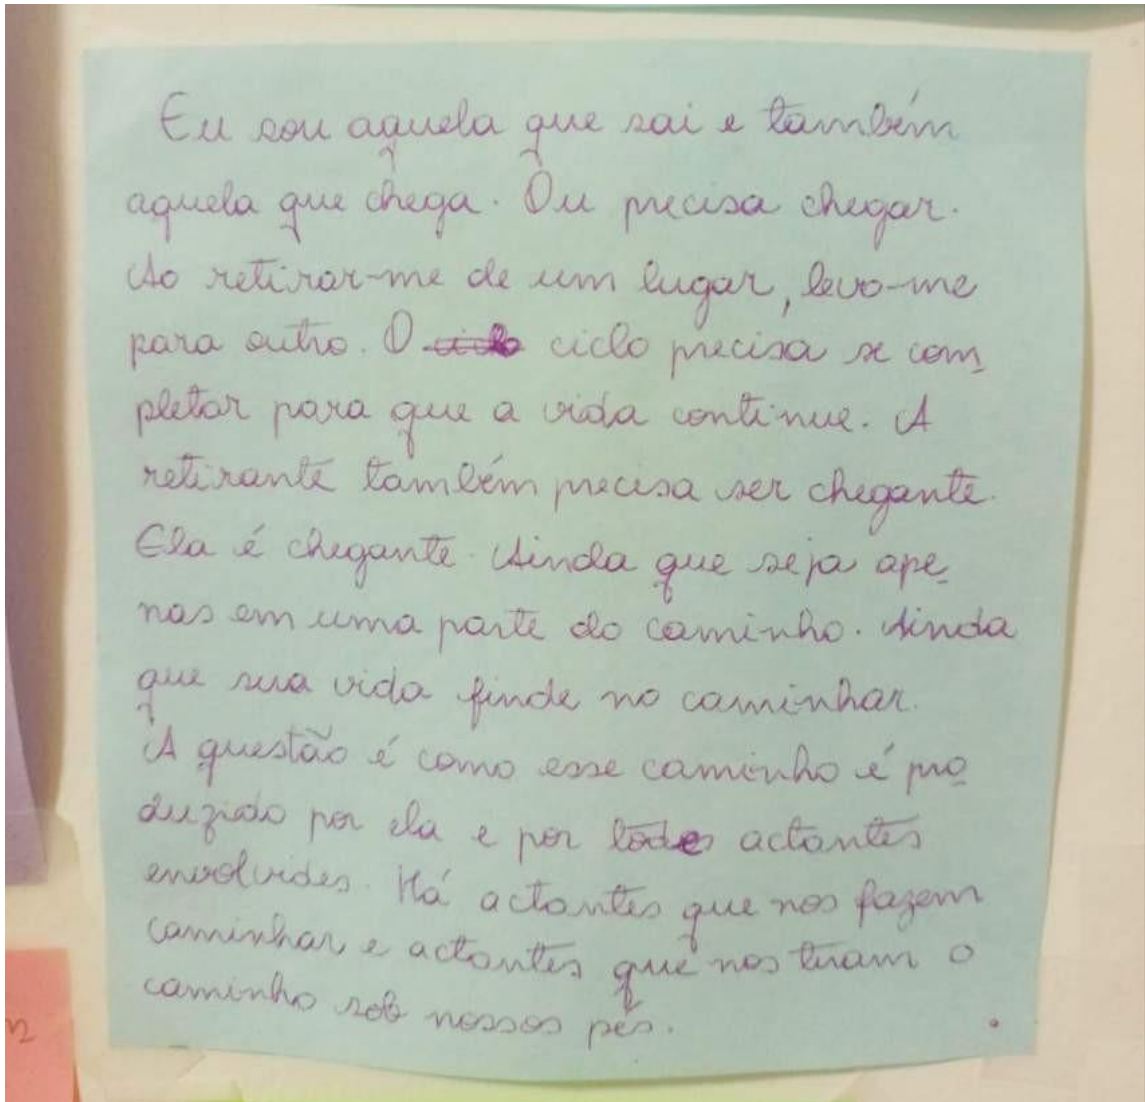 Eu sou aquela que sai e também
aquela que chega. Ou precisa chegar.
Ao retirar-me de um lugar, levo-me
para outro. O ciclo ciclo precisa se com
pletar para que a vida continue. A
retirante também precisa ser chegante.
Ela é chegante. Ainda que seja ape
nas em uma parte do caminho. Ainda
que sua vida finde no caminhar.
A questão é como esse caminho é pro
duzido por ela e por todes actantes
envolvides. Há actantes que nos fazem
caminhar e actantes que nos tiram o
caminho sob nossos pés.